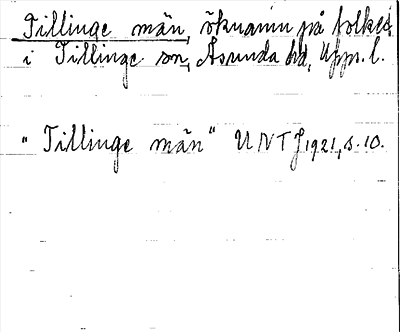 Tillinge män, öknamn på folket
i Tillinge sn, Åsunda hd, Uppl. l.
"Tillinge män" UNTJ 1921, s. 10.